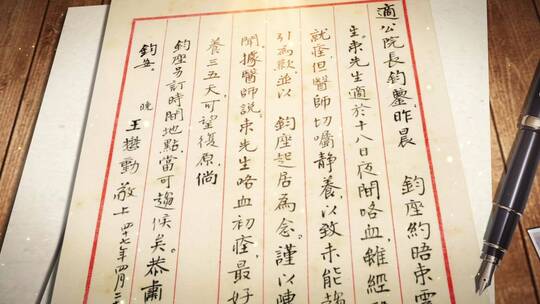 適公院長鈞鑒、昨晨 鈞座約晤束雲
生、束先生適於十八日夜間咯血、雖經
就痊、但醫師切囑靜養、以致未能
引為歉、並以 鈞座起居為念。謹以陳
聞、據醫師說、束先生咯血初痊、最好
養三五天、可望復原、倘
鈞座另訂時間地點、當可趨候矣。恭肅
鈞安。
晚 王懋勤敬上 四七年四月